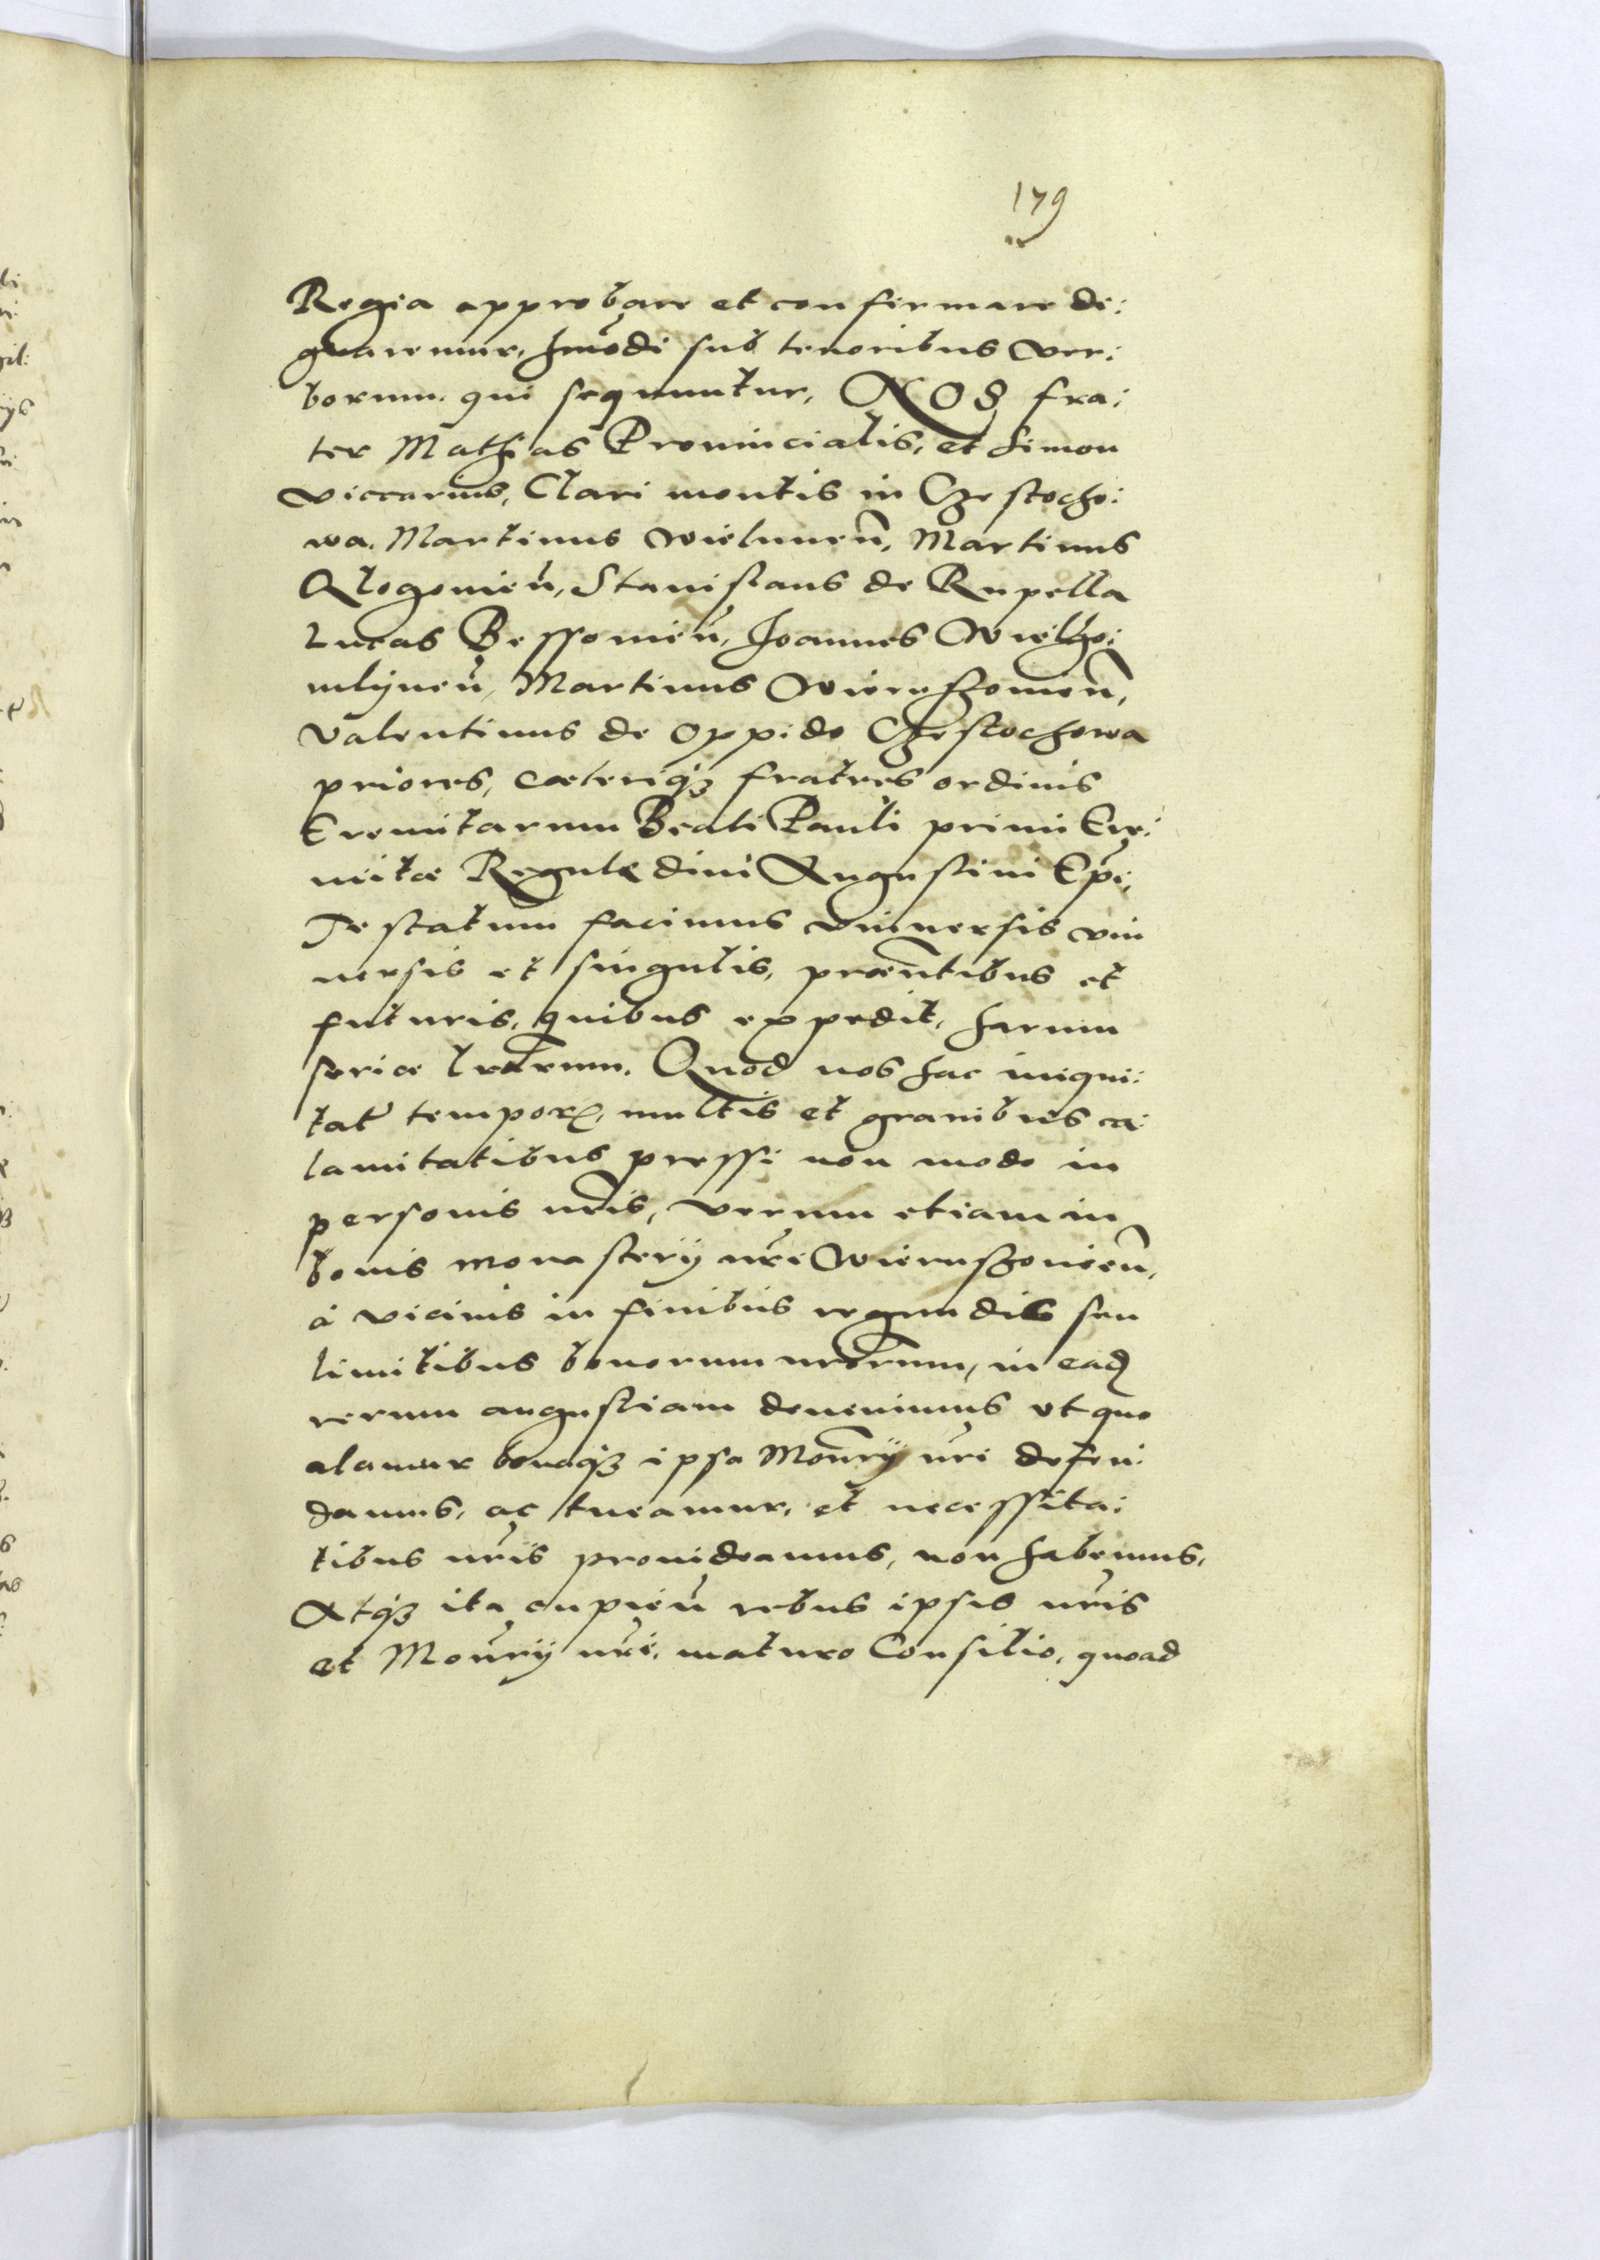 179
Regia approbare et confirmare de:
gnaremur, hmodi sub tenoribus ver:
borum. qui sequuntur, NOS fra:
ter Mathias Prouincialis, et Simon
viccarius, Clari montis in Czestocho:
wa. Martinus Wielunen, Martinus
Glogouien, Stanislaus de Rupella
Lucas Bessouien, Joannes Wielgo:
mlÿnen, Martinus Wieruszouien,
Valentinus de Oppido Czestochowa
priores, caeteriq3 fratres ordinis
Eremitarum Beati Pauli primi Ere:
mitae Regulae diui Augustini Epi,
Testatum facimus vniuersis vni
uersis et singulis, praentibus et
futuris, quibus expedit, harum
serie lrarum. Quod nos hac iniqui:
tate tempor, multis et grauibus ca:
lamitatibus pressi non modo in
personis nris, verum etiam in
bonis Monasterÿ nri Wieruszouien,
à vicinis in finibus regundis seu
limitibus bonorum nrorum, in ead
rerum angustiam deuenimus vt quo
alamur bonaq3 ipsa Monrÿ nri defen:
damus, ac tueamur, et necessita:
tibus nris prouideamus, non habemus,
Atq3 ita cupien rebus ipsis nris
et Monrÿ nri, maturo Consilio, quoad